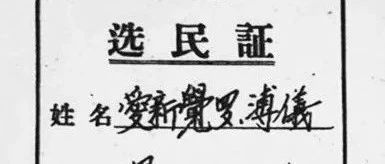 选民証
姓名 愛新覺罗.溥儀